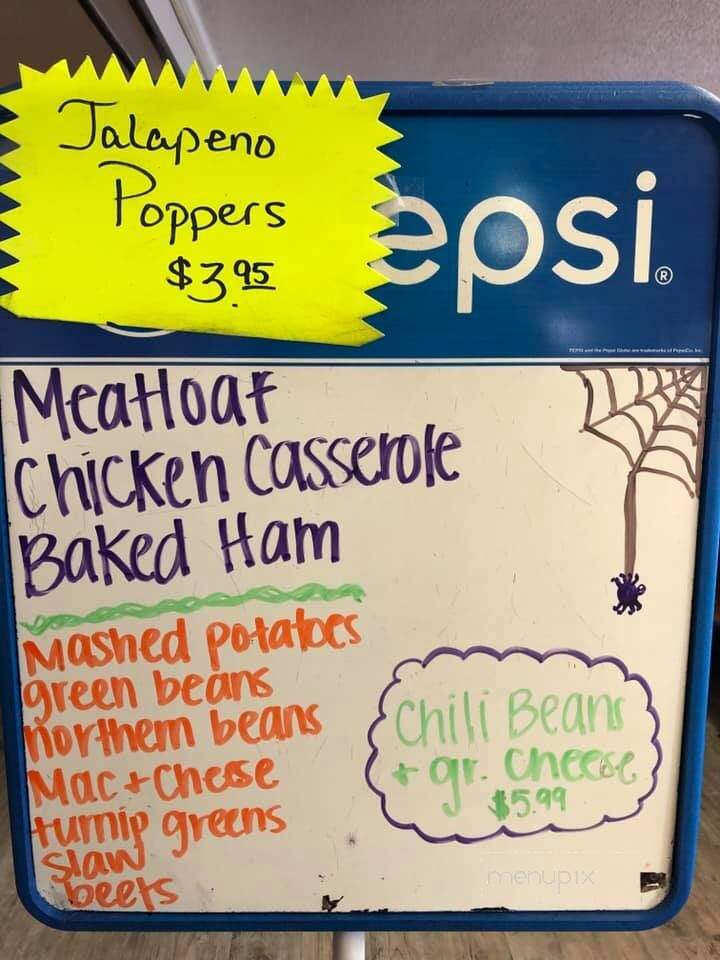 Jalapeno
Poppers
$3.95
epsi®
PEPSI and the Pepsi Globe are trademarks of PepsiCo, Inc.
Meatloaf
Chicken Casserole
Baked Ham
Mashed potatoes
green beans
northern beans
Mac + Cheese
turnip greens
slaw
beets
Chili Beans
+ gr. cheese
$5.99
menupix